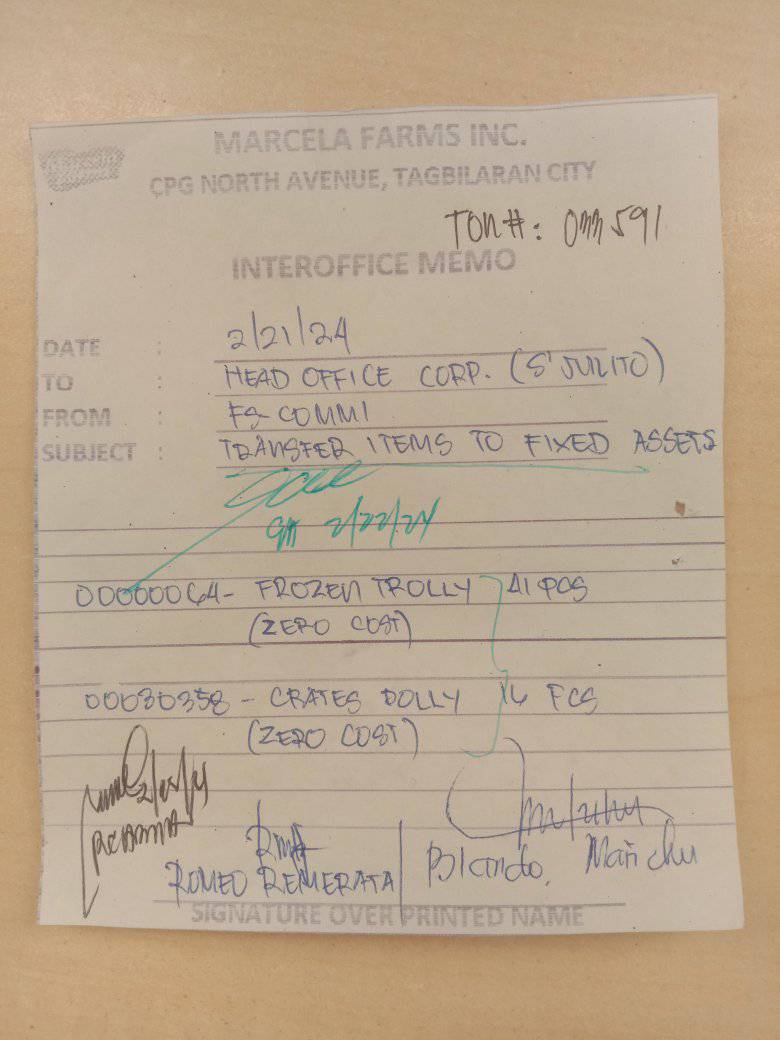 MARCELA FARMS INC.
CPG NORTH AVENUE, TAGBILARAN CITY
TON#:
INTEROFFICE MEMO
DATE : 2/21/24
TO : HEAD OFFICE CORP. (S' JULITO)
FROM : FG-COMMI
SUBJECT : TRANSFER ITEMS TO FIXED ASSETS
2/22/24
00000064- FROZEN TROLLY 41 PCS
(ZERO COST)
00030358 - CRATES DOLLY 16 PCS
(ZERO COST)
ROMEO REMERATA
Blando,
SIGNATURE OVER PRINTED NAME